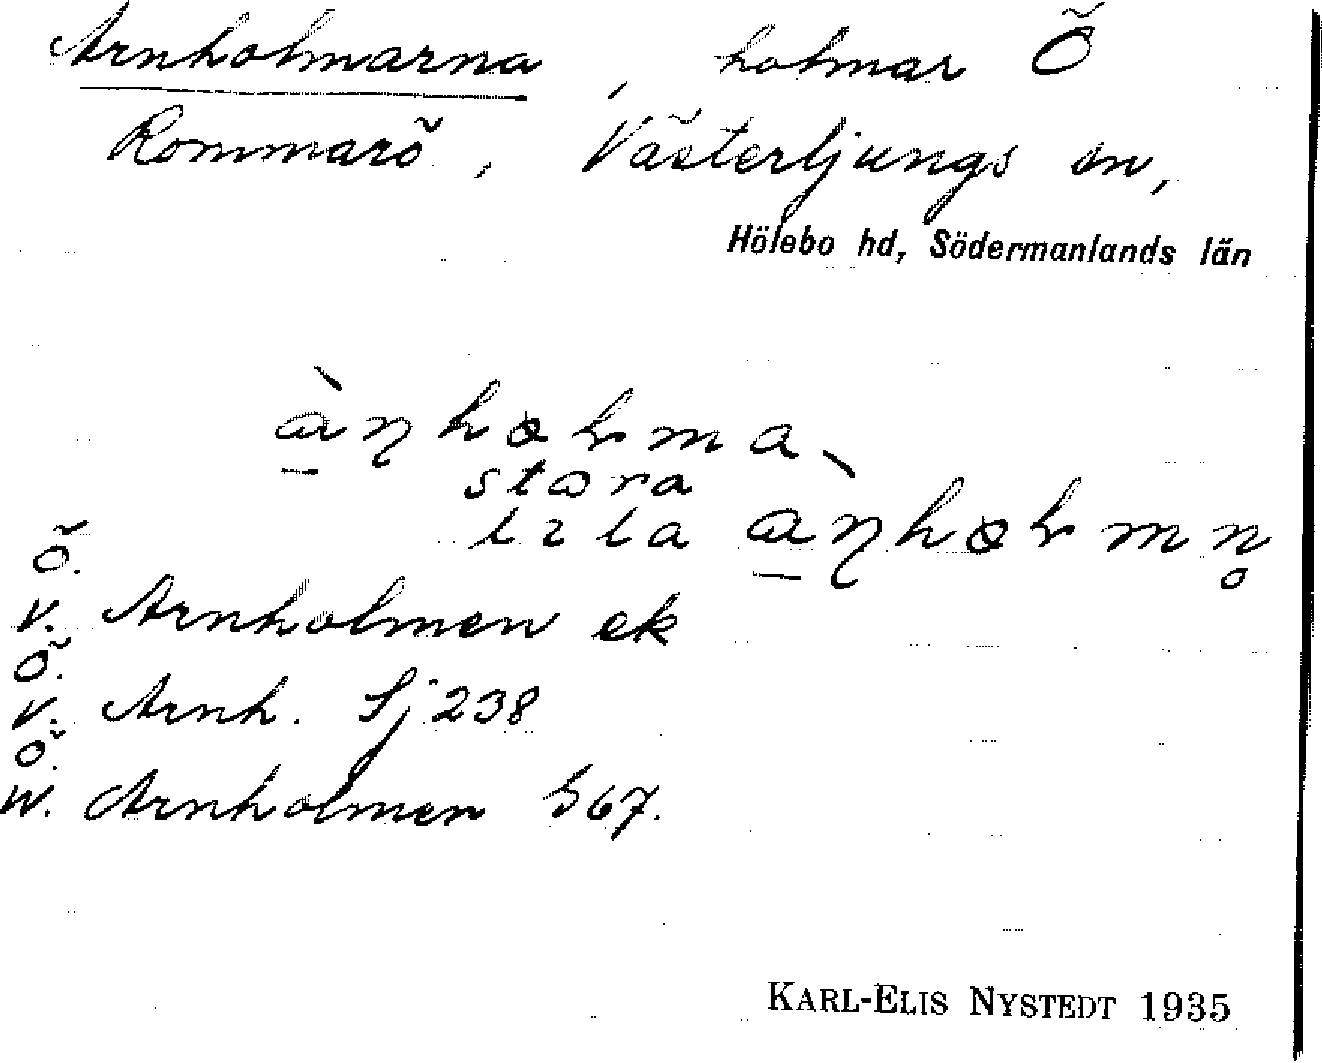 Arnholmarna, holmar Ö
Rommarö, Västerljungs sn,
Hölebo hd, Södermanlands län
stora
lila
Ö.
V. Arnholmen ek
Ö.
V. Arnh. Sj 238
Ö.
W. Arnholmen h67.
KARL-ELIS NYSTEDT 1935